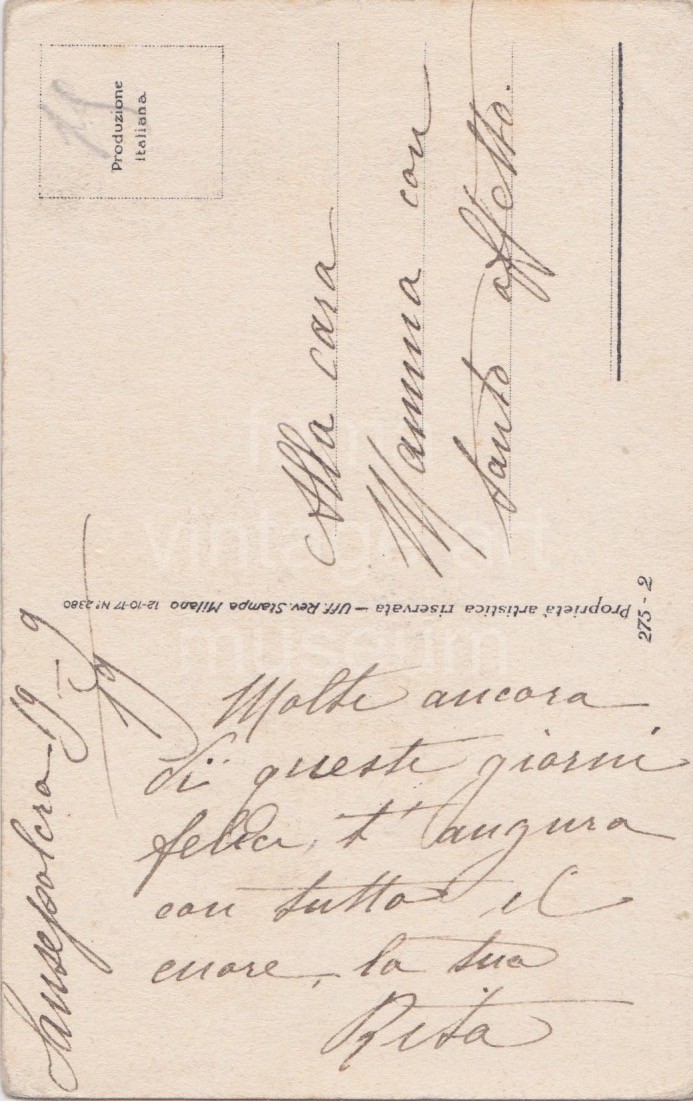 Produzione
Italiana.
Alla cara
Mamma con
tanto affetto.
Sansepolcro 19_9
19
Proprietà artistica riservata — Uff. Rev. Stampa Milano 12-10-17 N° 2380
275 - 2
Molti ancora
di questi giorni
felici, t'augura
con tutto il
cuore, la tua
Rita
vintage art
museum